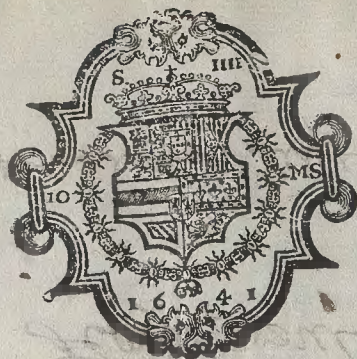 S IIII
10 MS
1641